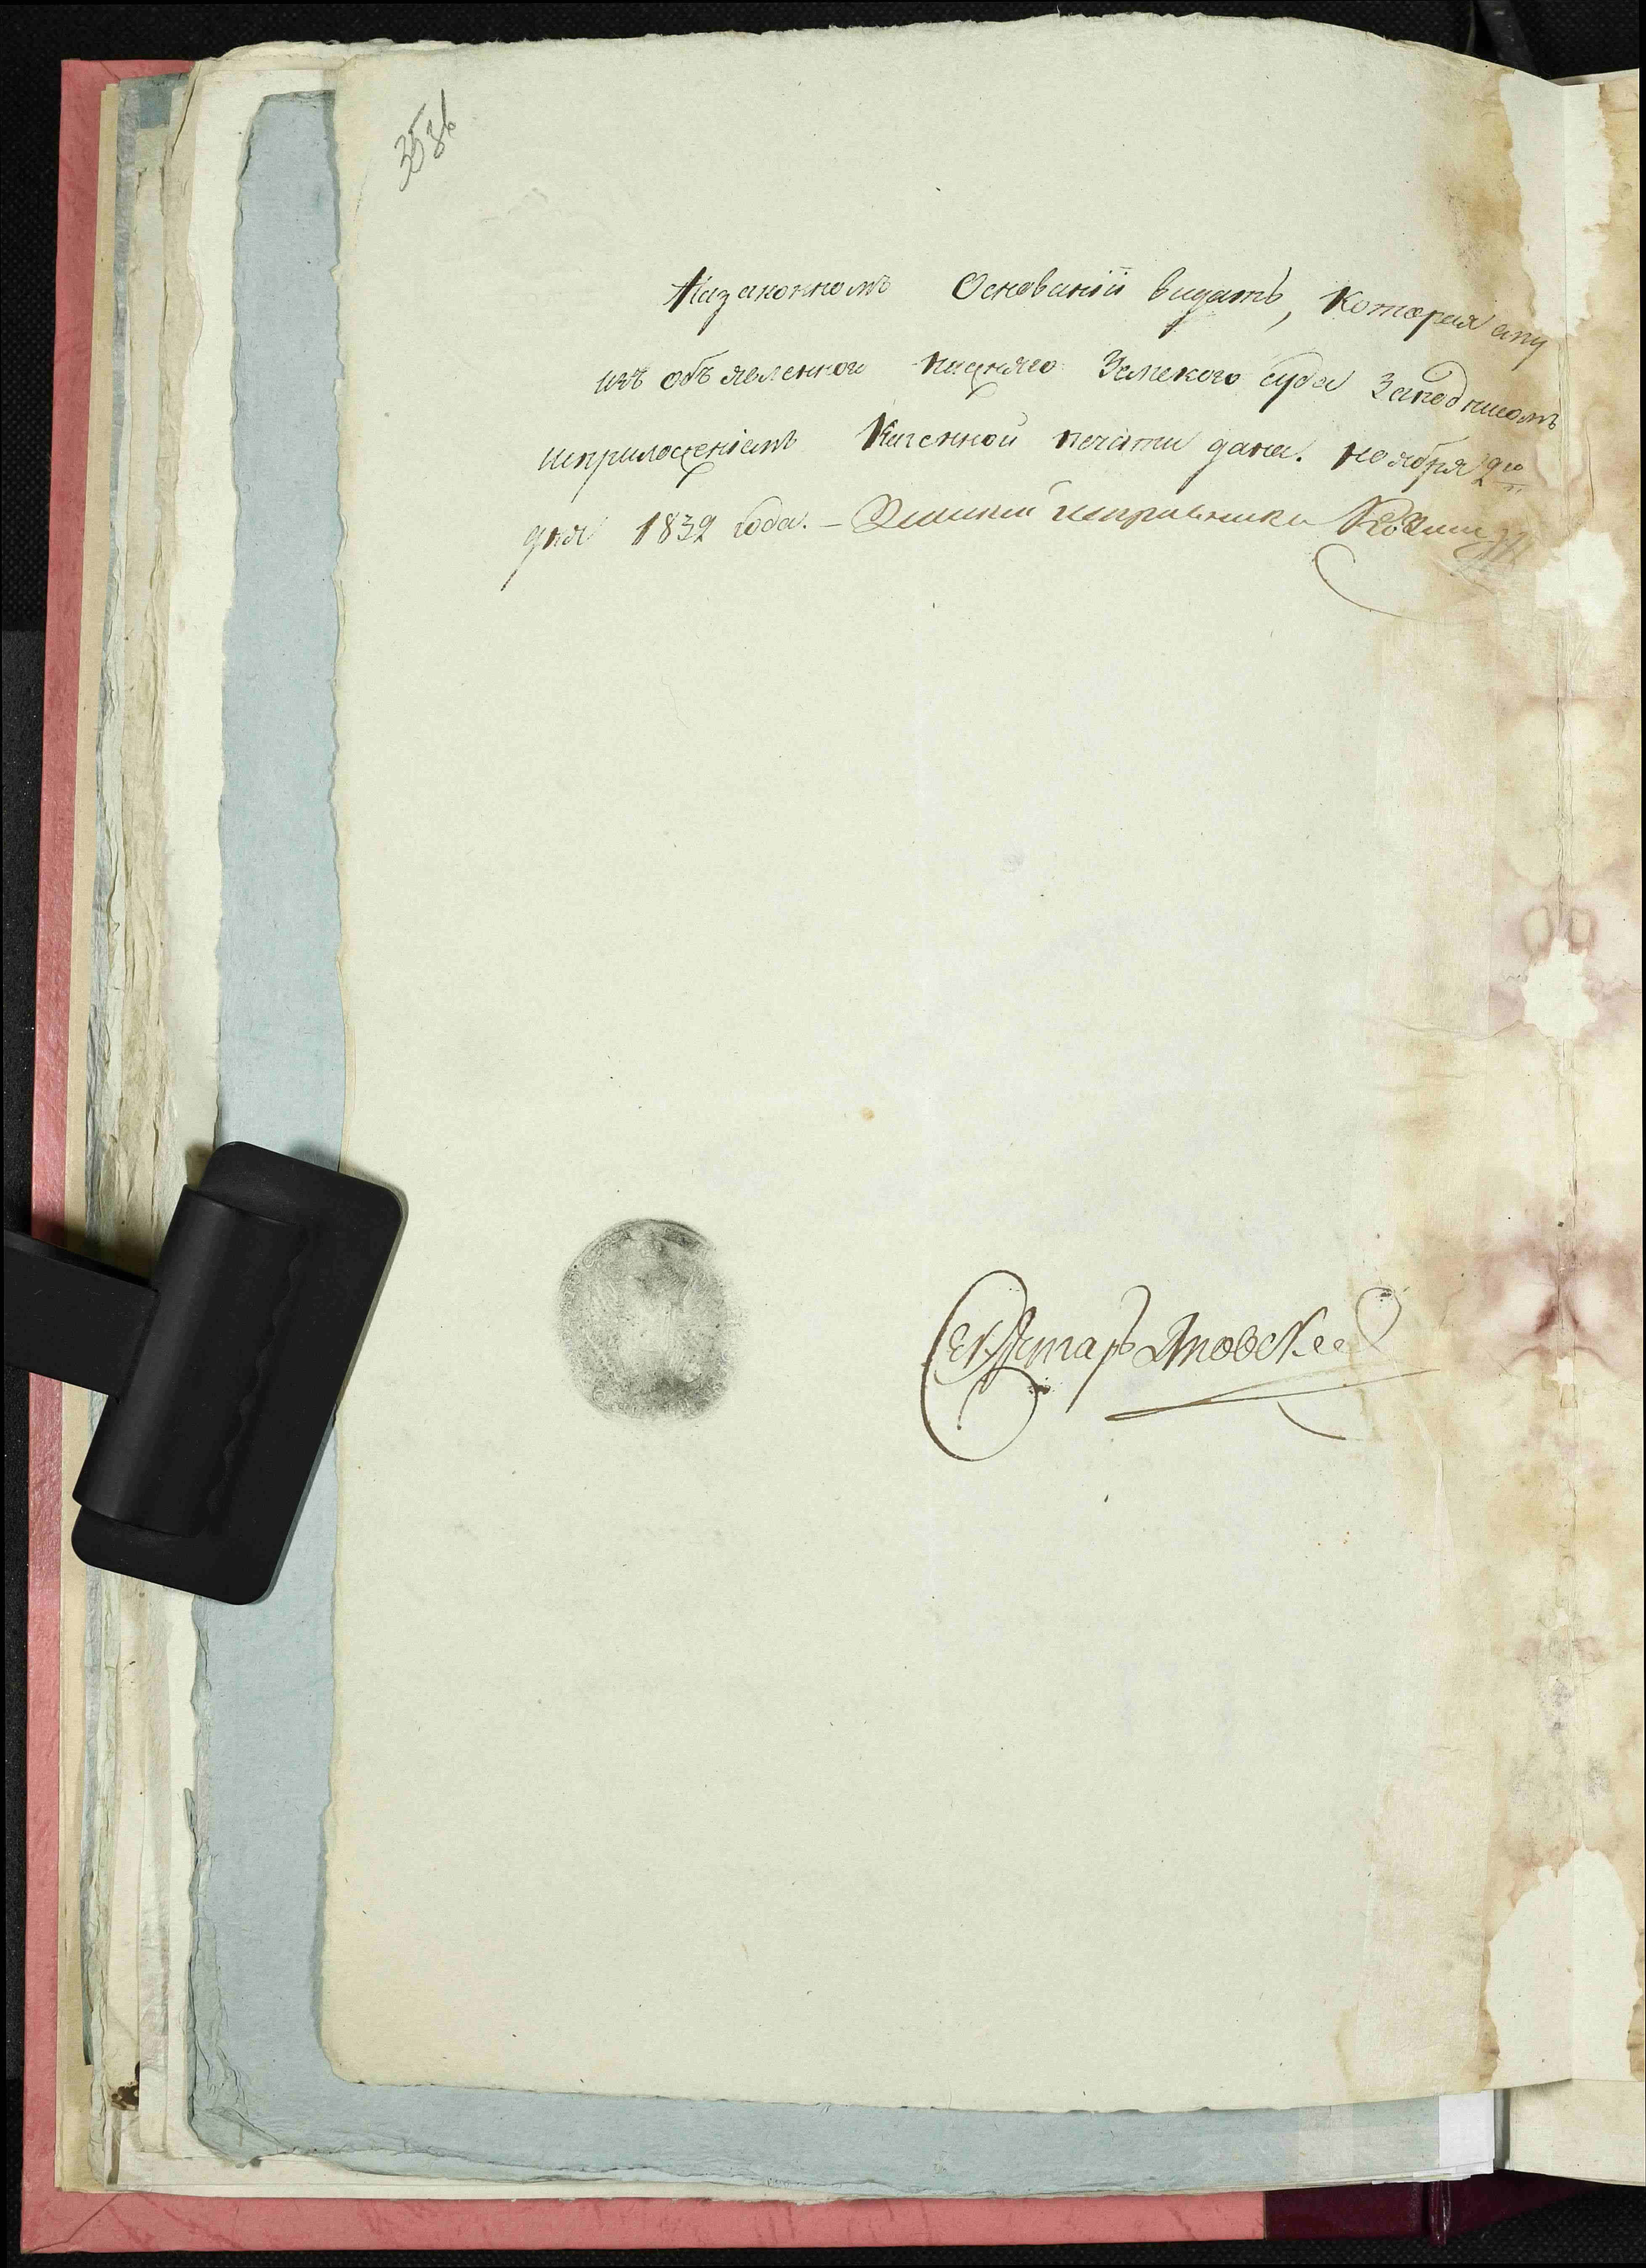 35 зв
Назаконномъ Основаніи видать, Которая ему
изъ объявленного нижняго Земского суда Заподписомъ
исприложеніемъ Казенной печати дана. ноября 2го
дня 1832 года. — Земский исправникъ
Секретарь